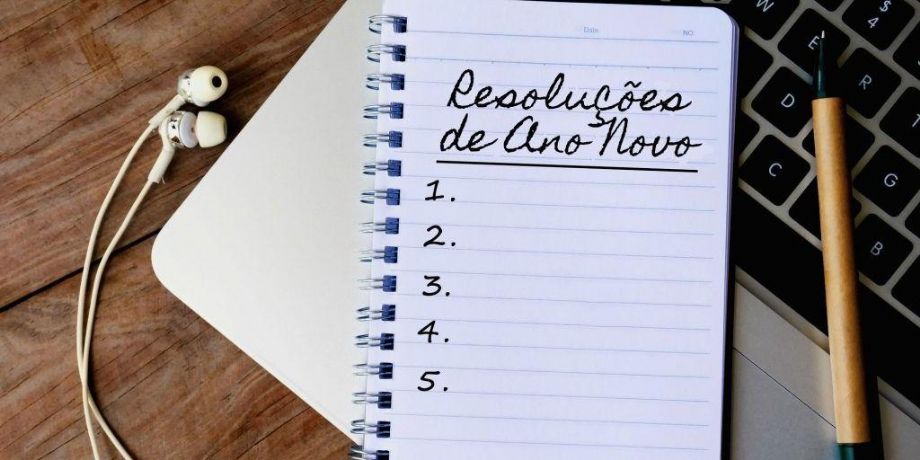 Date NO
Resoluções
de Ano Novo
1.
2.
3.
4.
5.
W
$
4
E
R
D
C
G
B